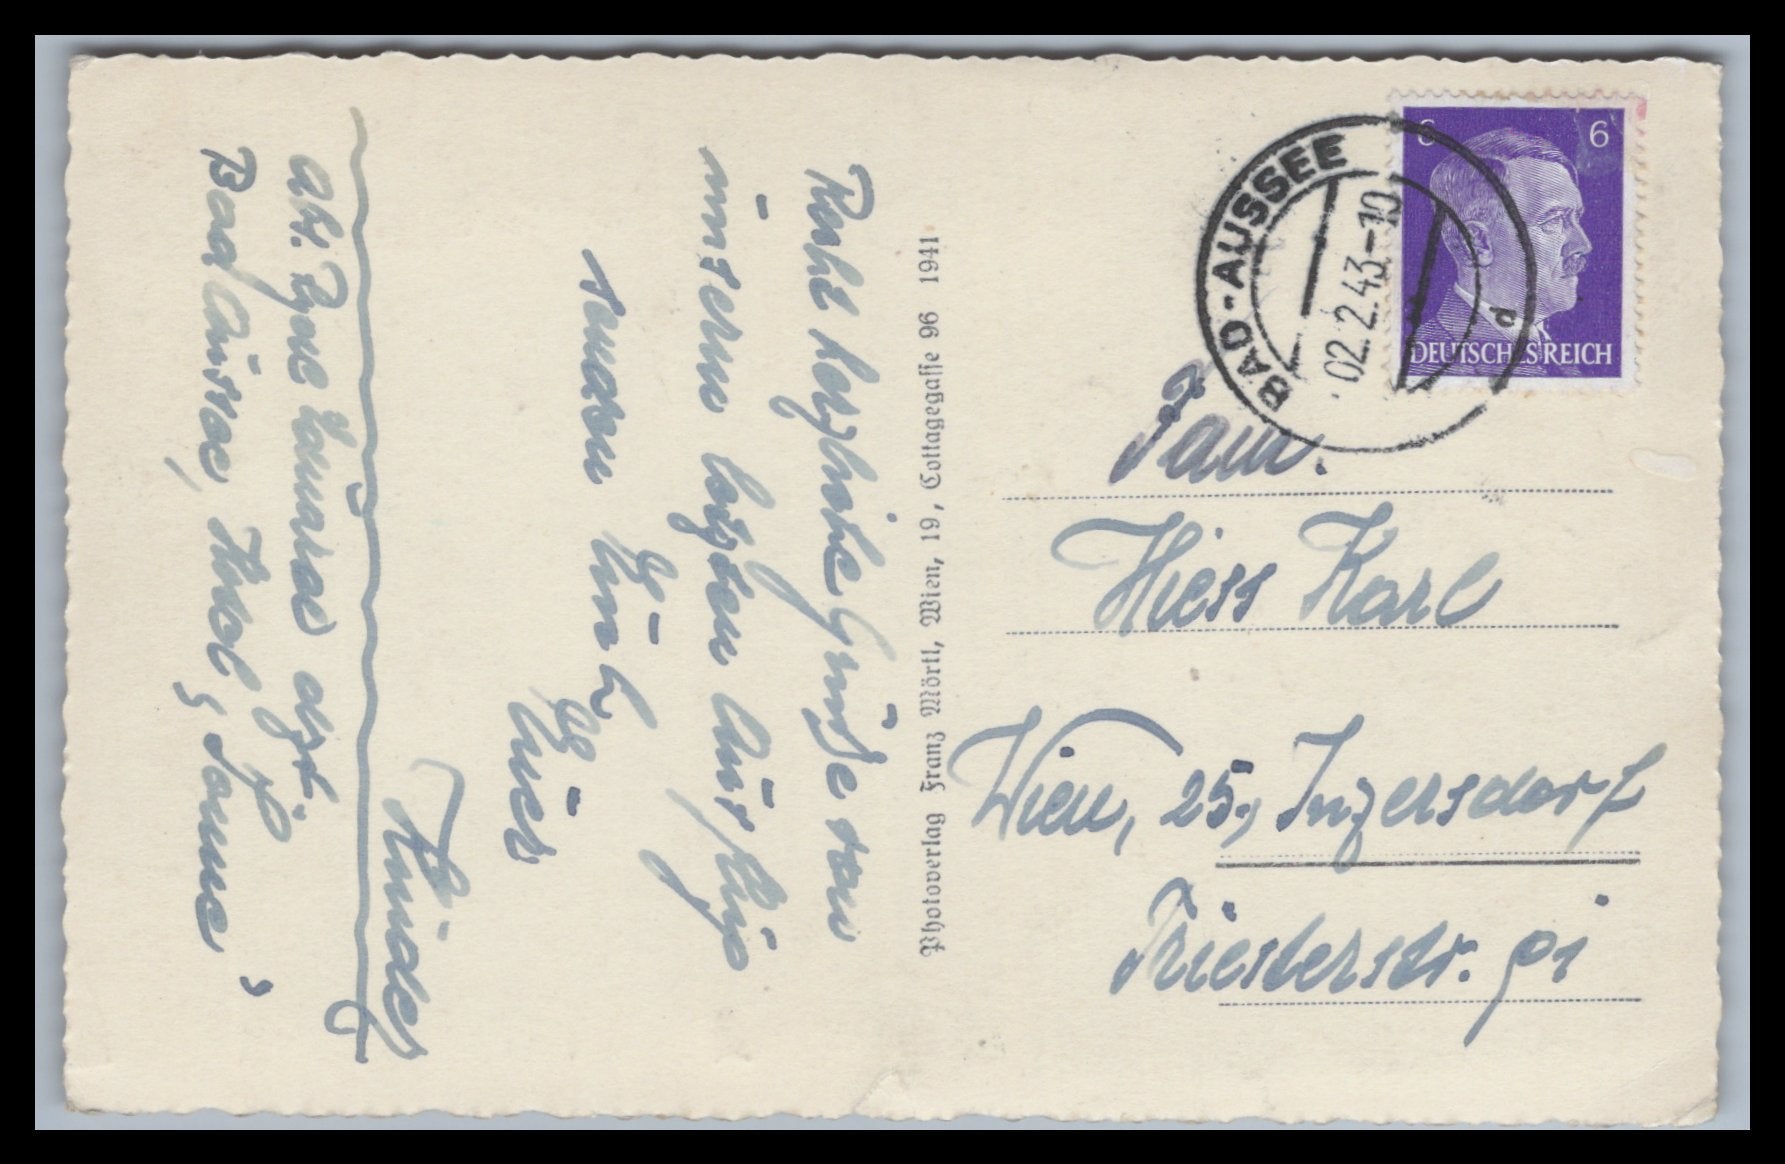 Recht herzliche Grüße von
unserem letzten Ausflug
senden Euch
Eure
Kinder
Abs.
Bad Aussee, Hotel „Sonne"
Photoverlag Franz Mörtl, Wien, 19, Cottagegasse 96 1941
6 6
DEUTSCHES REICH
BAD-AUSSEE
02.2.43-10
d
Fam.
Hiess Karl
Wien, 25., Inzersdorf
Triesterstr. 91